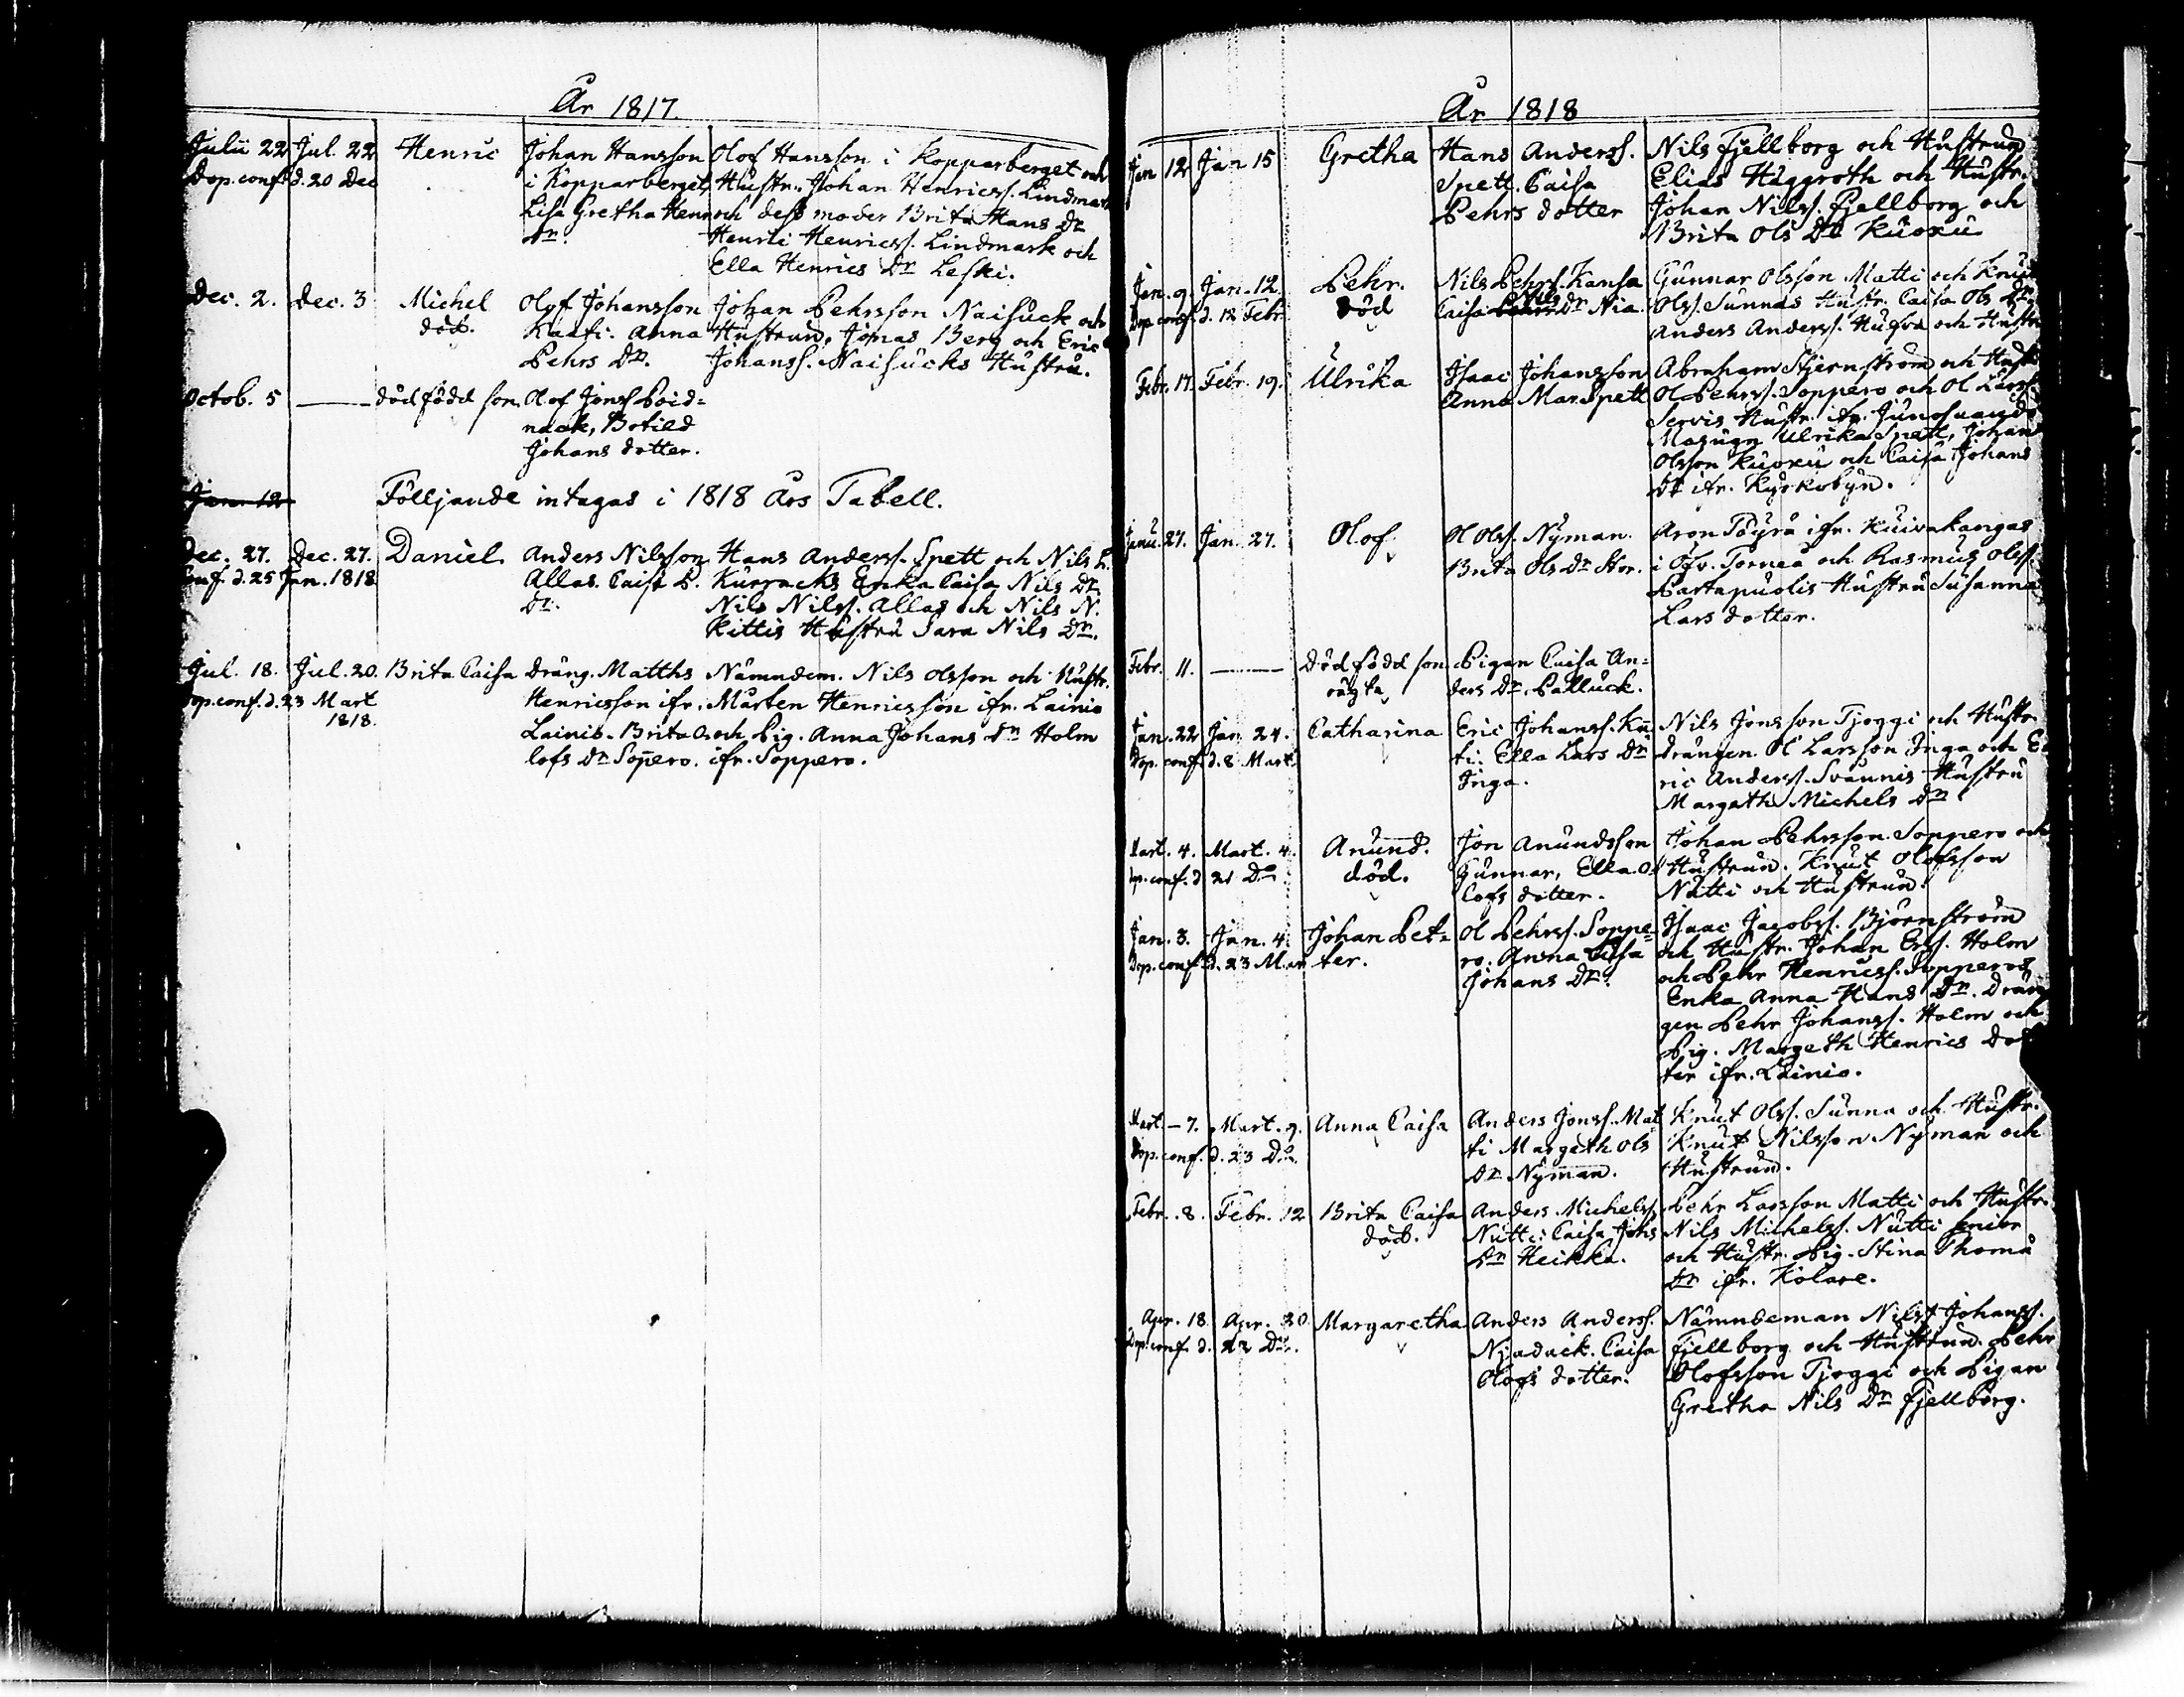 År 1817.
Julii 22 Jul. 22 Henric Johan Hansson Olof Hansson i Kopparberget och
Dop. conf. d. 20 Dec i Kopparberget Hustr. Johan Henricss. Lindmark
Lisa Gretha Henr och dess moder Brita Hans Dr
dr. Henric Henricss. Lindmark och
Ella Henrics Dr Leski.
Dec. 2. Dec. 3 Michel Olof Johansson Johan Pehrsson Naisuck och
död. Anna Hustrun, Jonas Berg och Eric
Pehrs Dr. Johanss. Naisucks Hustru.
Octob. 5 — dödfödd son Olof Jonss Poid-
nack, Botild
Johans dotter.
Jan. 12 Följande intagas i 1818 Års Tabell.
Dec. 27. Dec. 27. Daniel. Anders Nilsson Hans Anderss. Spett och Nils P.
Conf. d. 25 Jan. 1818 Allas. Caisa P. Kurracks Enka Caisa Nils Dr.
Dr. Nils Nilss. Allas och Nils N.
Kittis Hustru Sara Nils Dr.
Jul. 18. Jul. 20. Brita Caisa Dräng. Matths Nämndem. Nils Olsson och Hustr.
Dop. conf. d. 23 Mart Henricsson ifr. Mårten Henricsson ifr. Lainio
1818. Lainio. Brita O- och Pig. Anna Johans Dr Holm
lofs Dr Sopero. ifr. Soppero.
År 1818
Jan 12 Jan 15 Gretha Hans Anderss. Nils Fjellborg och Hustrun
Spett. Caisa Elias Häggroth och Hustr.
Pehrs dotter Johan Nilss. Fjellborg och
Brita Ols Dr Kuoxu
Jan. 9 Jan. 12. Pehr. Nils Pehrss. Kansa Gunnar Olsson Matti och Knut
Dop conf. d. 12 Febr. död Caisa Pehrs Nils Dr Nia. Olss. Sunnas Hustr. Caisa Ols Dr.
Anders Anderss. Hufva och Hustr
Febr. 17. Febr. 19. Ulrika Isaac Johansson Abraham Stjernström och Hustr
Anna Mar. Spett Ol Pehrss. Soppero och Ol Larss.
Servis Hustr. ifr. Junosuando
Masugn Ulrika Spett, Johan
Olsson Kuoxu och Caisa Johans
Dr ifr. Kyrkobyn.
Janu. 27. Jan. 27. Olof Ol Olss. Nyman. Aron Töyrä ifr. Kuivakangas
Brita Ols Dr Stor. i Öfv. Torneå och Rasmus Olss.
Partapuolis Hustru Susanna
Lars dotter.
Febr. 11. — Dödfödd son Pigan Caisa An-
oägta ders Dr. Palluck.
Jan. 22 Jan. 24. Catharina Eric Johanss. Ku- Nils Jonsson Tjoggi och Hustr.
Dop. conf. d. 8 Mart. ti. Ella Lars Dr Drängen Ol Larsson Inga och E-
Inga. ric Anderss. Svaunis Hustru
Margath Michels Dr
Mart. 4. Mart. 4. Anund. Jon Anundsson Johan Pehrsson Soppero och
Dop. conf. d 21 Do död. Gunnar, Ella O- Hustrun. Knut Olofsson
lofs dotter. Nutti och Hustrun.
Jan. 3. Jan. 4. Johan Pet- Ol Pehrss. Soppe- Isaac Jacobss. Björnström
Dop. conf. d. 23 Mar ter. ro. Anna Caisa och Hustr. Johan Erss. Holm
Johans Dr. och Pehr Henricss. Sopperos
Enka Anna Hans Dr. Drän
gen Pehr Johanss. Holm och
Pig. Margeth Henrics Dot
ter ifr. Lainio.
Mart. — 7. Mart. 9. Anna Caisa Anders Jonss. Mat Knut Olss. Sunna och Hustr.
Dop. conf. d. 23 Do. ti Margath Ols Knut Nilsson Nyman och
Dr Nyman. Hustrun.
Febr. 8. Febr. 12 Brita Caisa Anders Michelss. Pehr Larsson Matti och Hustr.
död. Nutti: Caisa Johs Nils Michelss. Nutti senior
Dr Heikka. och Hustr. Pig. Stina Thoma
Dr ifr. Kolare.
Apr. 18 Apr. 20. Margaretha Anders Anderss. Nämndeman Nils Johanss.
Dop. conf. d. 22 Do. Njaduck. Caisa Fjellborg och Hustrun. Pehr
Olofs dotter. Olofsson Tjoggi och Pigan
Gretha Nils Dr Fjellborg.